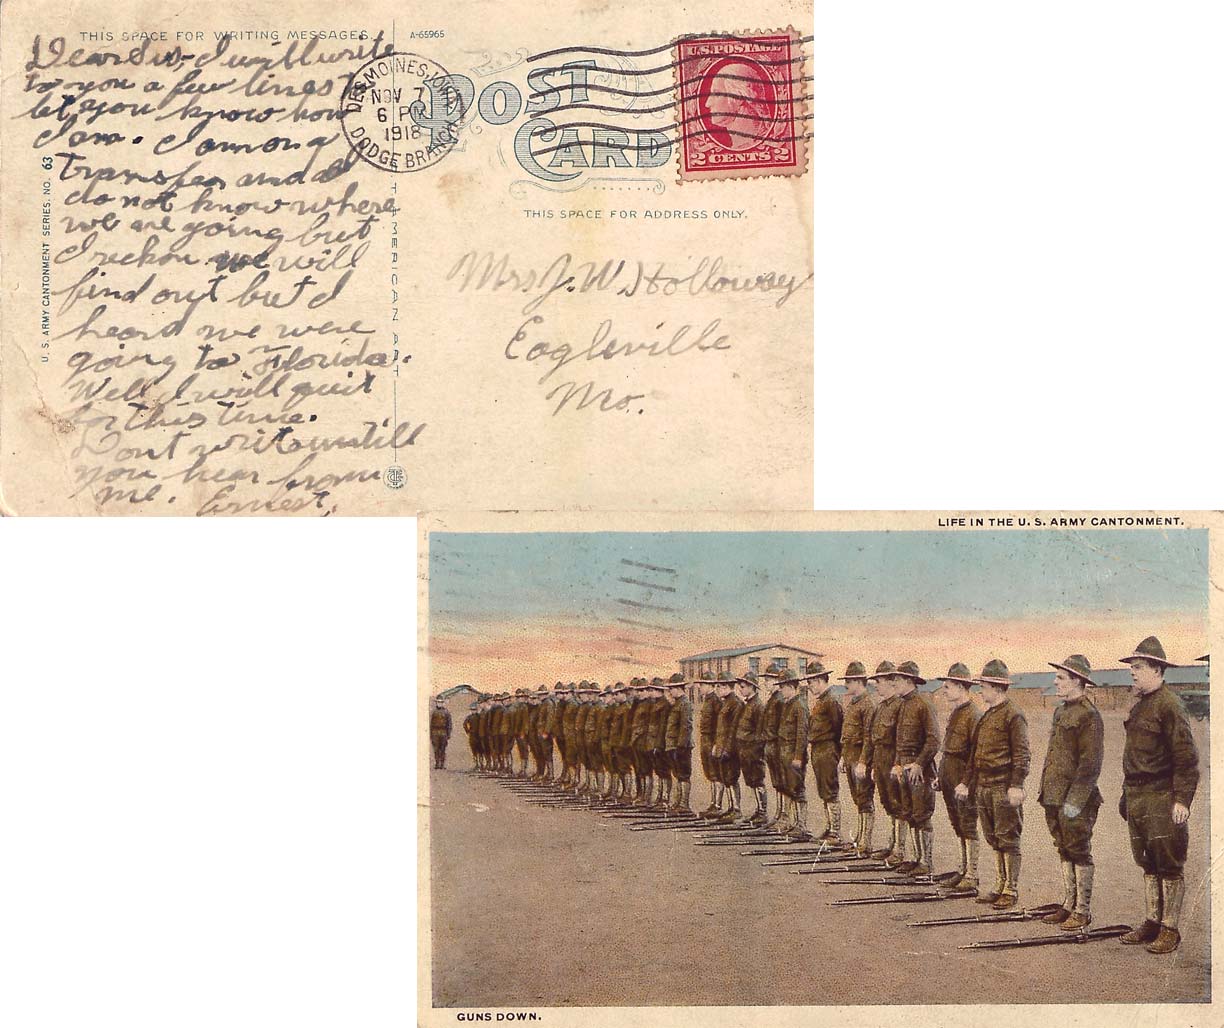 THIS SPACE FOR WRITING MESSAGES.
A-65965
Dear Sis, I will write
to you a few lines to
let you know how
I am. I am on a
transfer and I
do not know where
we are going but
I reckon we will
find out but I
heard we were
going to Florida.
Well I will quit
for this time.
Dont write untill
you hear from
me. Ernest.
U. S. ARMY CANTONMENT SERIES. NO. 63
AMERICAN ART
DES MOINES, IOWA
NOV 7
6 PM
1918
DODGE BRANCH
POST
CARD
U.S. POSTAGE
2 CENTS 2
THIS SPACE FOR ADDRESS ONLY.
Mrs J. W. Holloway
Eagleville
Mo.
LIFE IN THE U. S. ARMY CANTONMENT.
GUNS DOWN.